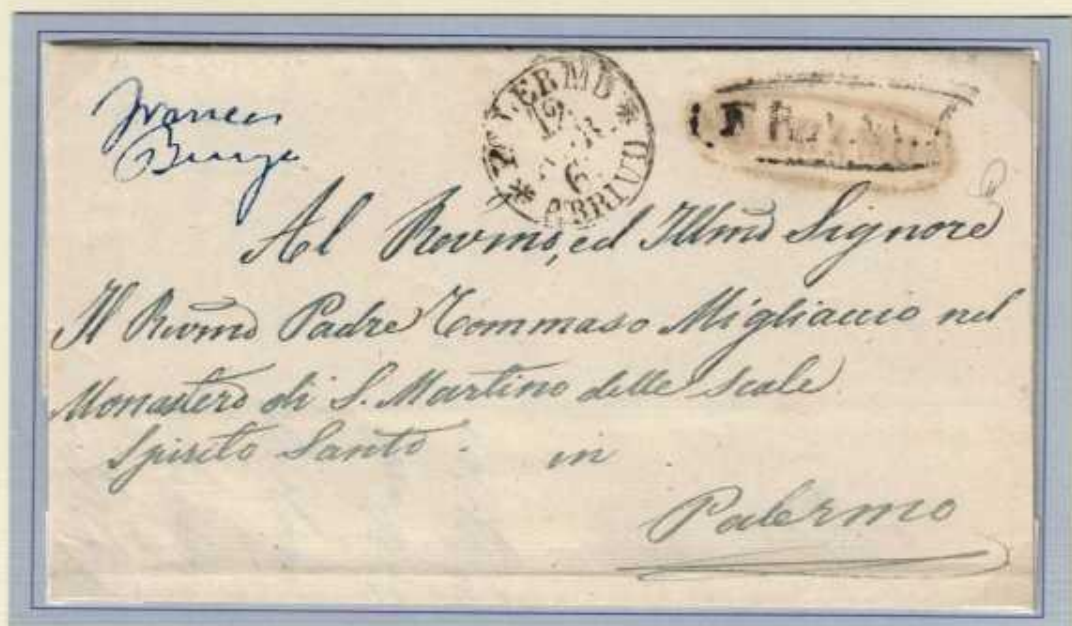 PALERMO
12
6
ARRIVO
Al Revmo, ed Illmo Signore
Il Revmo Padre Tommaso Migliaccio nel
Monastero di S. Martino delle Scale
Spirito Santo. in
Palermo